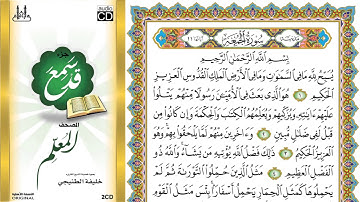 audio
CD
جزء
قد سمع
المصحف
المعلم
خليفة الطنيجي
2CD
ORIGINAL
سورة الجمعة
بسم الله الرحمن الرحيم
يسبح لله ما في السموت وما في الأرض الملك القدوس العزيز
الحكيم ١ هو الذي بعث في الأمين رسولا منهم يتلوا
عليهم ءايته ويزكيهم ويعلمهم الكتب والحكمة وإن كانوا من
قبل لفي ضلل مبين ٢ وءاخرين منهم لما يلحقوا بهم وهو
العزيز الحكيم ٣ ذلك فضل الله يؤتيه من يشاء والله ذو
الفضل العظيم ٤ مثل الذين حملوا التورىة ثم لم
يحملوها كمثل الحمار يحمل أسفارا بئس مثل القوم